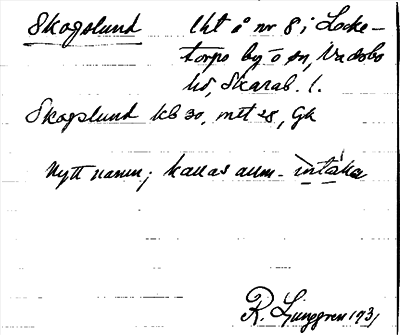 Skogslund lht å nr 8 i Locke-
torps by o sn, Vadsbo
hd, Skarab. l.
Skogslund kb 30, mtt 28, Gk
Nytt namn; kallas allm. intåka
R. Ljunggren 1931